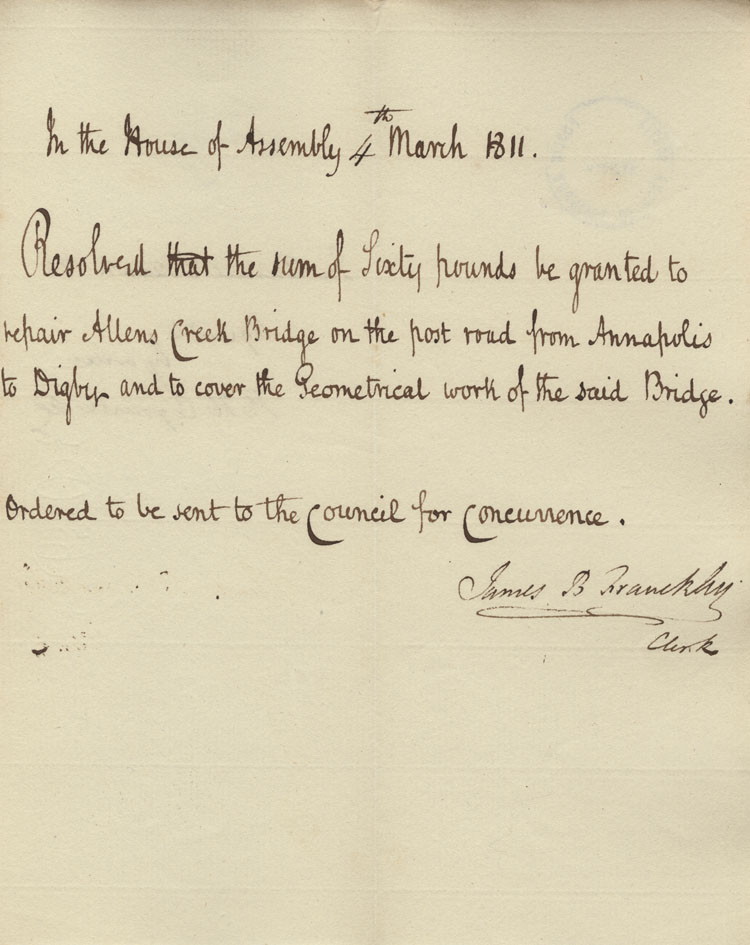 In the House of Assembly 4th March 1811.
Resolved that the sum of Sixty pounds be granted to
repair Allens Creek Bridge on the post road from Annapolis
to Digby and to cover the Geometrical work of the said Bridge.
Ordered to be sent to the Council for Concurrence.
James B Franckly
Clerk